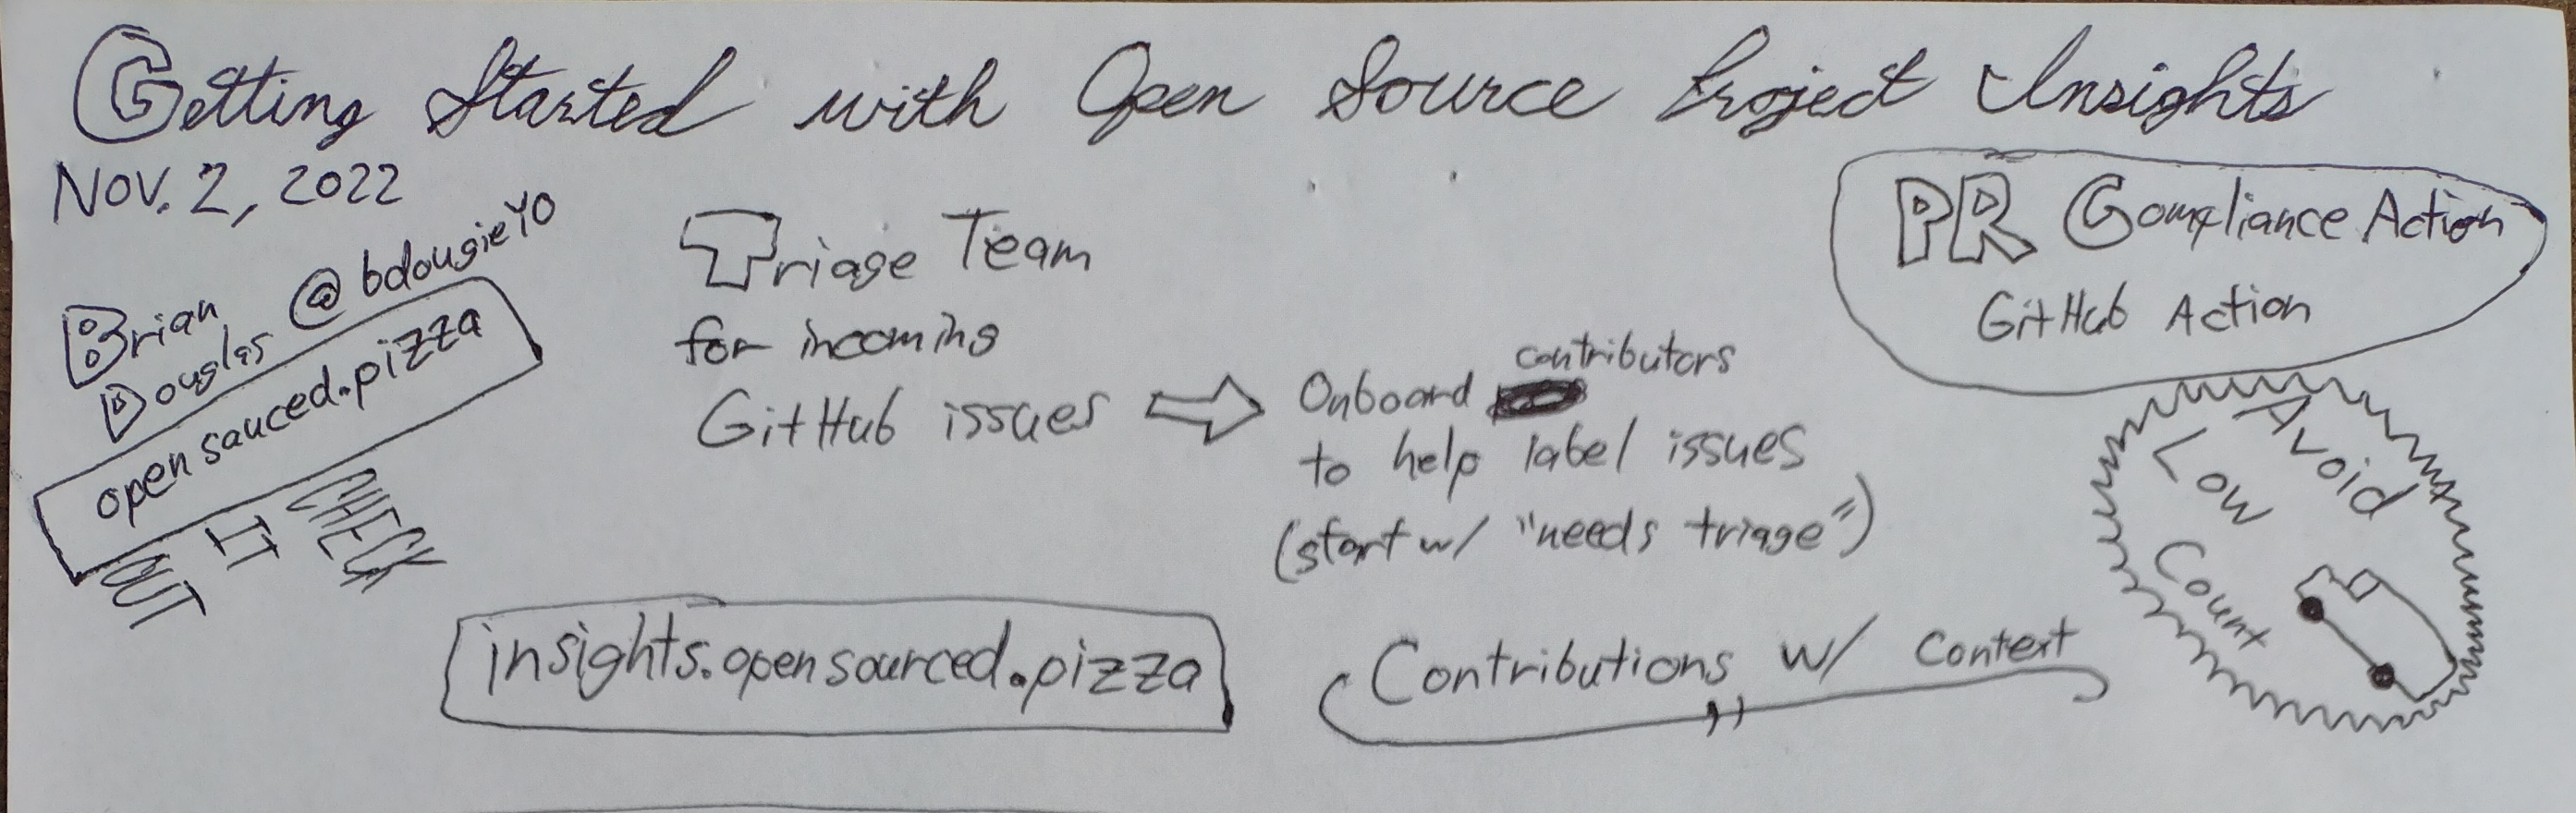 Getting Started with Open Source Project Insights
Nov. 2, 2022
Brian
Douglas
@bdougieYO
opensauced.pizza
CHECK
IT
OUT
Triage Team
for incoming
GitHub issues
Onboard contributors
to help label issues
(start w/ "needs triage")
PR Compliance Action
GitHub Action
Avoid
Low
Count
insights.opensourced.pizza
Contributions w/ context